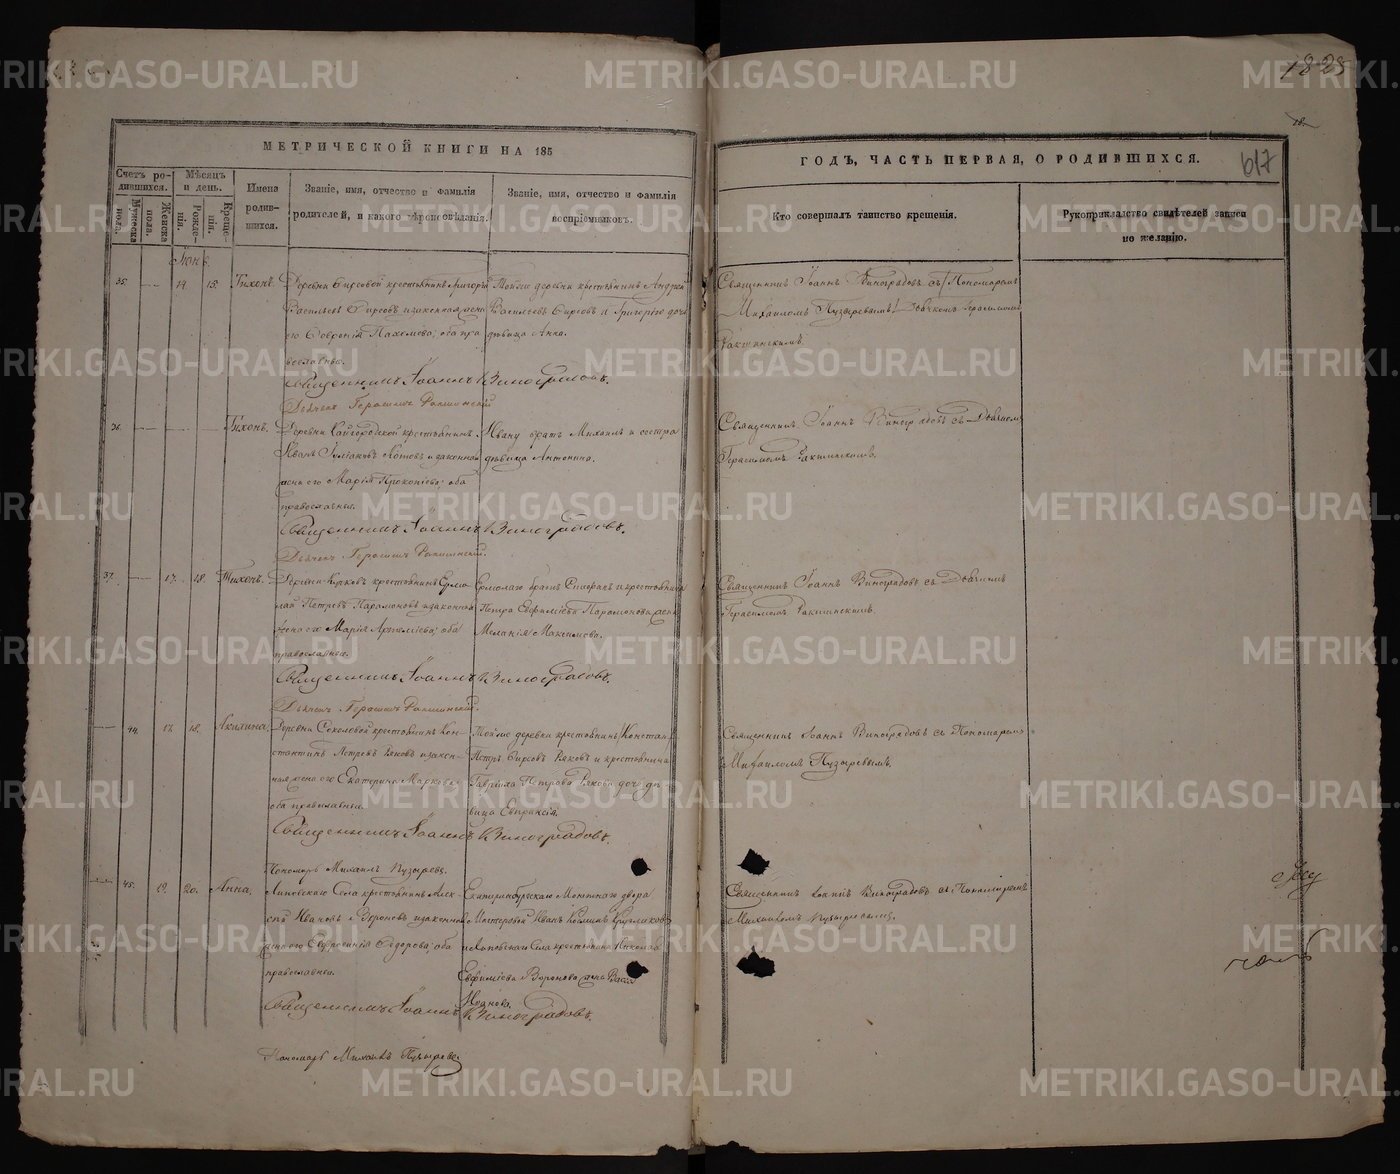 1828
МЕТРИЧЕСКОЙ КНИГИ НА 185
ГОДЪ, ЧАСТЬ ПЕРВАЯ, О РОДИВШИХСЯ.
617
Счетъ родившихся.
Мужеска пола.
Женска пола.
Мѣсяцъ и день.
Рожденія.
Крещенія.
Имена родившихся.
Званіе, имя, отчество и фамилія
родителей, и какого вѣроисповѣданія.
Званіе, имя, отчество и фамилія
воспріемниковъ.
Кто совершалъ таинство крещенія.
Рукоприкладство свидѣтелей записи
по желанію.
35. 15. Тихонъ. крестьянинъ Григорій
Васильевъ Фирсовъ и законная жена
его Февронія оба пра
вославные.
Тойже деревни крестьянинъ Андрей
Васильевъ Фирсовъ и Григорія дочь
дѣвица Анна.
Священникъ Іоаннъ Виноградовъ съ Пономаремъ
Михаиломъ Пузыревымъ Дьячкомъ Герасимомъ
Ракшинскимъ.
Священникъ Іоаннъ Виноградовъ.
Дьячекъ Герасимъ Ракшинскій
36. Тихонъ. Деревни крестьянинъ
Иванъ Котовъ и законная
жена его Марія Прокопіева; оба
православные.
Ивану братъ Михаилъ и сестра
дѣвица Антонина.
Священникъ Іоаннъ Виноградовъ съ Дьячкомъ
Герасимомъ Ракшинскимъ.
Священникъ Іоаннъ Виноградовъ.
Дьячекъ Герасимъ Ракшинскій.
37. 17. 18. Тихонъ. Деревни крестьянинъ Ермо
лай Петровъ Парамоновъ и законная
жена его Марія Артеміева; оба
православные.
Ермолаю братъ Епифанъ и крестьянина
Петра Евфиміева Парамонова жена
Меланія Максимова.
Священникъ Іоаннъ Виноградовъ съ Дьячкомъ
Герасимомъ Ракшинскимъ.
Священникъ Іоаннъ Виноградовъ.
Дьячекъ Герасимъ Ракшинскій.
44. 17. 18. Акилина. Деревни Соколовой крестьянинъ Кон
стантинъ Петровъ и закон
ная жена его Екатерина Маркова;
оба православные.
Тойже деревни крестьянинъ
Петръ Фирсовъ и крестьянина
Гавріила Петрова дочь дѣ
вица Евпраксія.
Священникъ Іоаннъ Виноградовъ съ Пономаремъ
Михаиломъ Пузыревымъ.
Священникъ Іоаннъ Виноградовъ.
Пономарь Михаилъ Пузыревъ.
45. 19. 20. Анна. Липовскаго Села крестьянинъ Алек
сѣй Ивановъ и законная
жена его Евфросинія Ѳедорова; оба
православные.
Екатеринбургскаго Монетнаго двора
Мастеровой Иванъ Козминъ
и Липовскаго Села крестьянина Николая
Евфиміева Воронова жена
Иванова.
Священникъ Іоаннъ Виноградовъ съ Пономаремъ
Михаиломъ Пузыревымъ.
Священникъ Іоаннъ Виноградовъ.
Пономарь Михаилъ Пузыревъ
METRIKI.GASO-URAL.RU